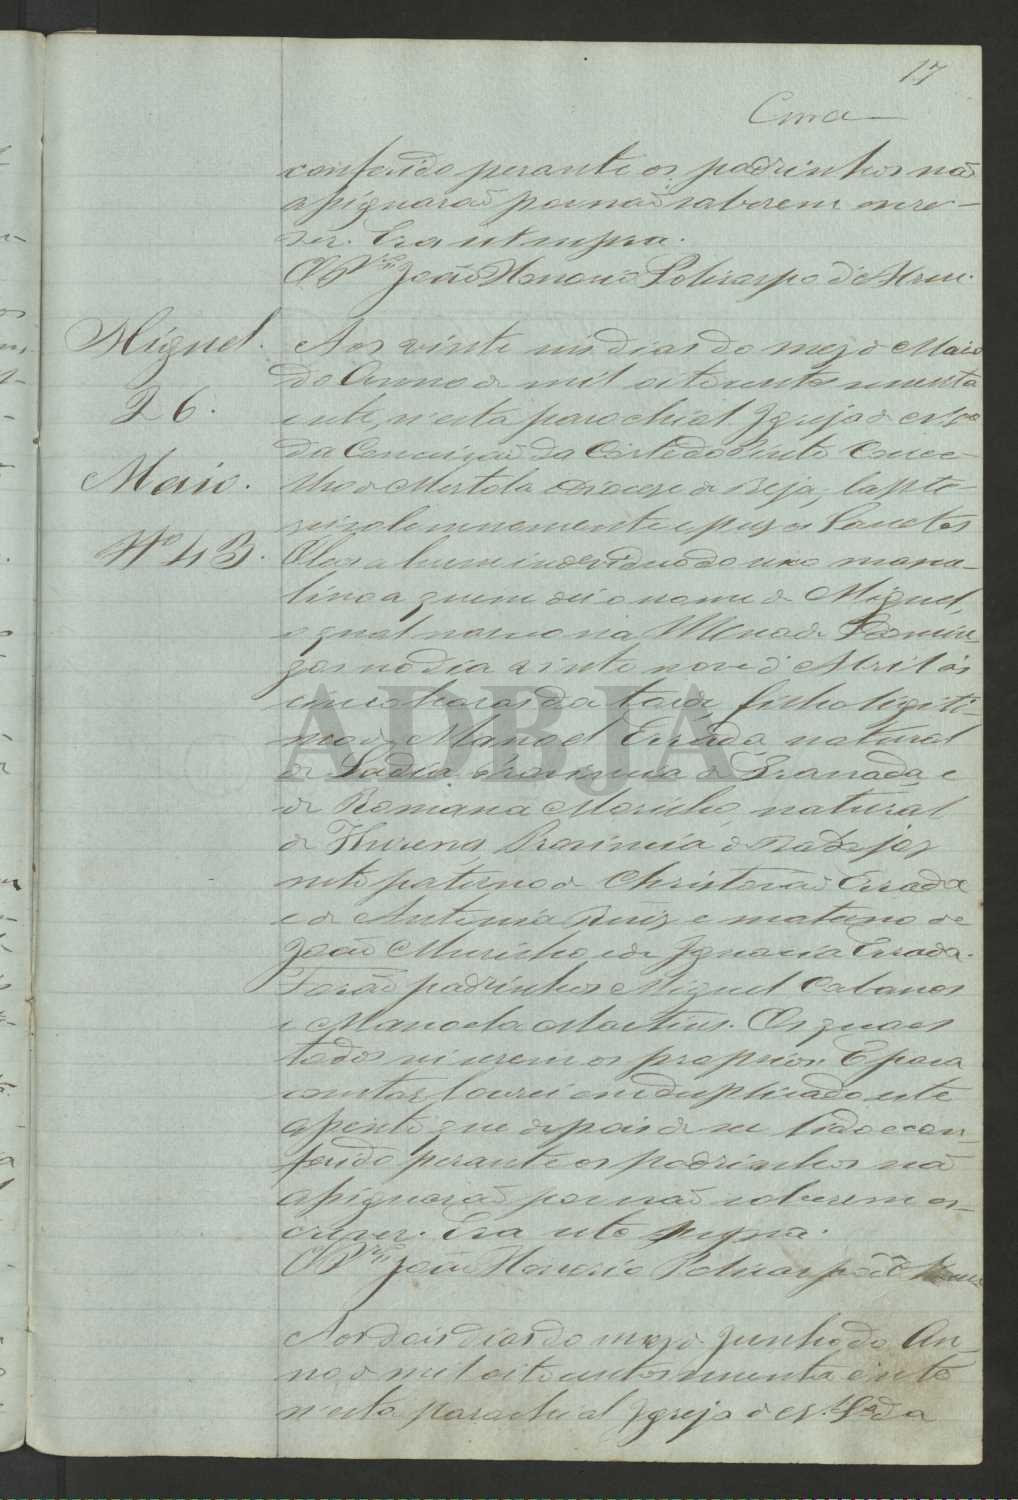 17
conferido perante os padrinhos não
assignarão por não saberem escre-
ver. Era ut supra.
O P.e João Honorio
Miguel.
26.
Maio.
Nº 43.
Aos vinte seis dias do mez de Maio
do Anno de mil oito centos sessenta
e sete, n'esta parochial Igreja de N. Sra
da Conceição da Corte do Pinto Conce-
lho de Mertola Diocese de Beja, bapte-
zei solemnemente e puz os Sanctos
Oleos a hum individuo do sexo mascu-
lino a quem dei o nome de Miguel,
o qual nasceo na Mina de S. Domin-
gos no dia vinte nove d'Abril ás
cinco horas da tarde, filho legiti-
mo de Manoel Errada, natural
de Provincia de Granada e
de Romana Morinho, natural
de Provincia de Badajoz
neto paterno de Christovão Errada
e de Antonia Ruiz e materno de
João Murinho e de Ignacia Errada.
Forão padrinhos Miguel Cabanos
e Manoela Martins. Os quaes
todos sei serem os proprios. E para
constar lavrei em duplicado este
assento que depois de ser lido e con-
ferido perante os padrinhos não
assignarão por não saberem es-
crever. Era ut supra.
O P.e João Honorio
Aos dois dias do mez de Junho do An-
no de mil oito centos sessenta e sete
n'esta parochial Igreja de N. Sra da
ADBJA